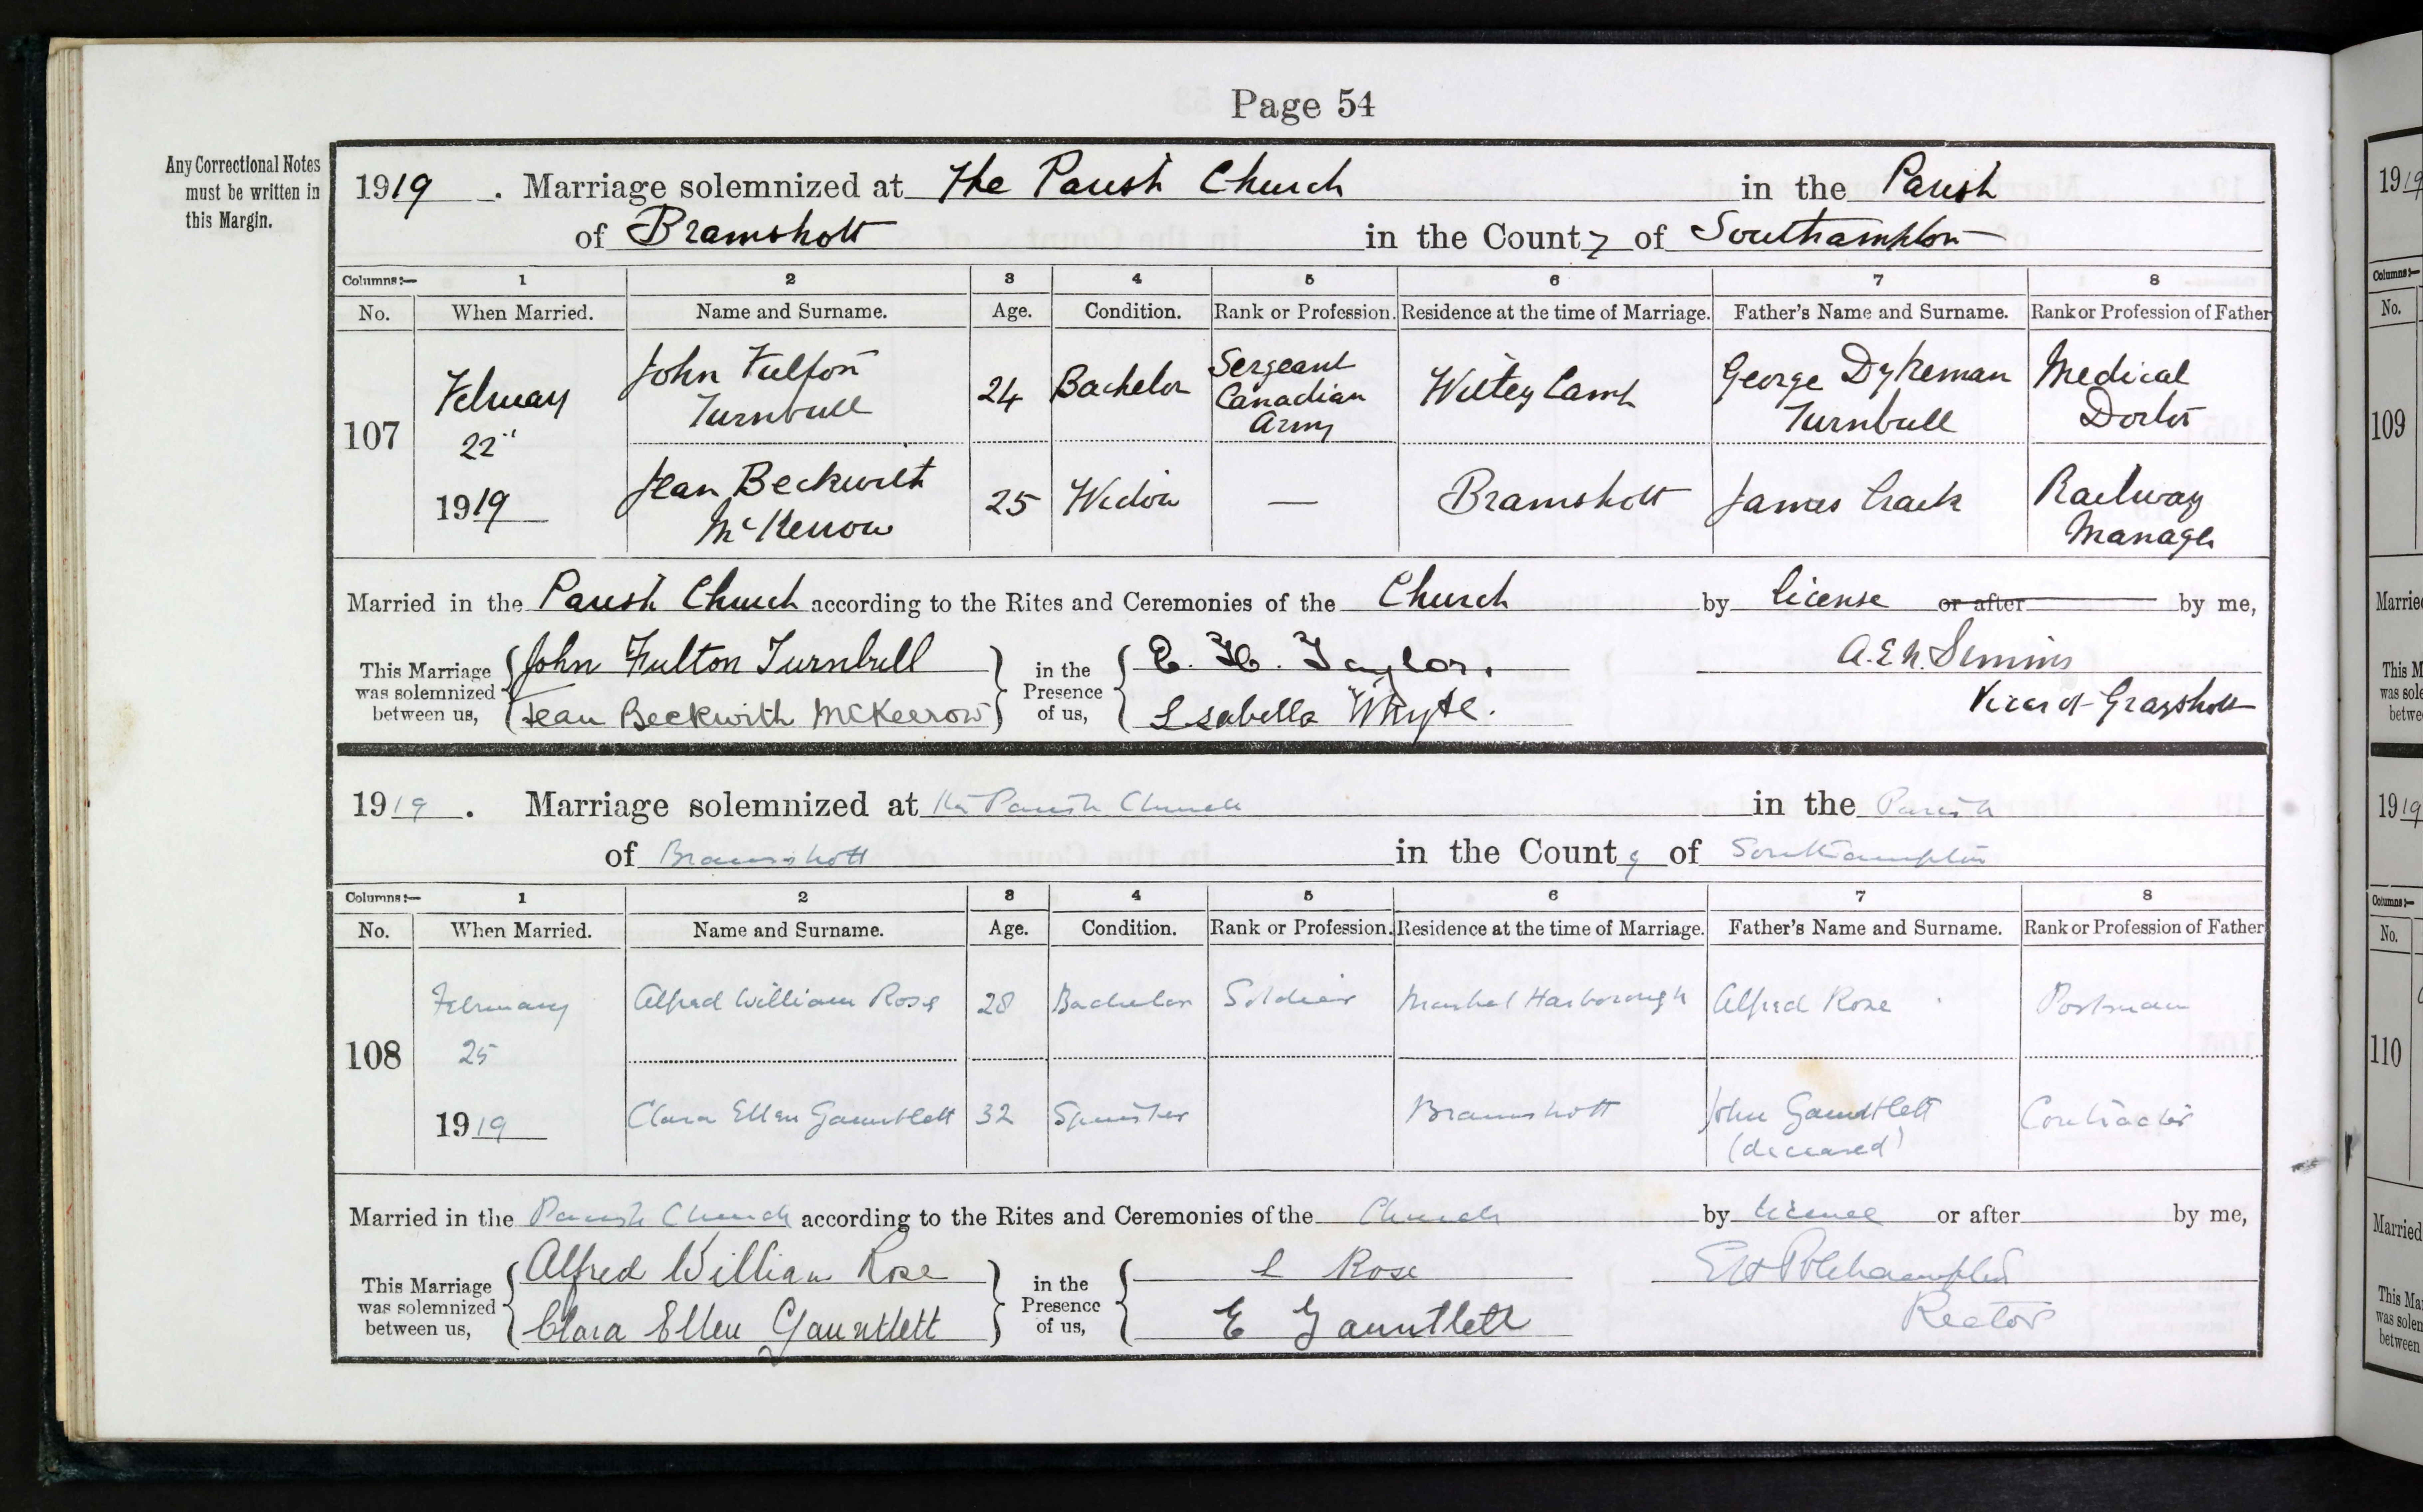 Page 54
Any Correctional Notes
must be written in
this Margin.
1919. Marriage solemnized at The Parish Church in the Parish
of Bramshott in the County of Southampton
Columns:— 1 2 3 4 5 6 7 8
No. When Married. Name and Surname. Age. Condition. Rank or Profession. Residence at the time of Marriage. Father's Name and Surname. Rank or Profession of Father
107 February 22nd 1919
John Fulton Turnbull 24 Bachelor Sergeant Canadian Army Witley Camp George Dykeman Turnbull Medical Doctor
Jean Beckwith McKerrow 25 Widow — Bramshott James Medical Railway Manager
Married in the Parish Church according to the Rites and Ceremonies of the Church by license or after by me,
This Marriage was solemnized between us, John Fulton Turnbull in the Presence of us, E. H. Taylor. A.E.N. Simms
Jean Beckwith McKerrow Isabella Whyte. Vicar of Grayshott
1919. Marriage solemnized at the Parish Church in the Parish
of Bramshott in the County of Southampton
Columns:— 1 2 3 4 5 6 7 8
No. When Married. Name and Surname. Age. Condition. Rank or Profession. Residence at the time of Marriage. Father's Name and Surname. Rank or Profession of Father
108 February 25 1919
Alfred William Rose 28 Bachelor Soldier Market Harborough Alfred Rose Postman
Clara Ellen Gauntlett 32 Spinster Bramshott John Gauntlett (deceased) Contractor
Married in the Parish Church according to the Rites and Ceremonies of the Church by licence or after by me,
This Marriage was solemnized between us, Alfred William Rose in the Presence of us, L Rose
Clara Ellen Gauntlett E Gauntlett Rector
1919
Columns:—
No.
109
Married
This M
was sole
betwe
1919
Columns:—
No.
110
Married
This Ma
was solen
between